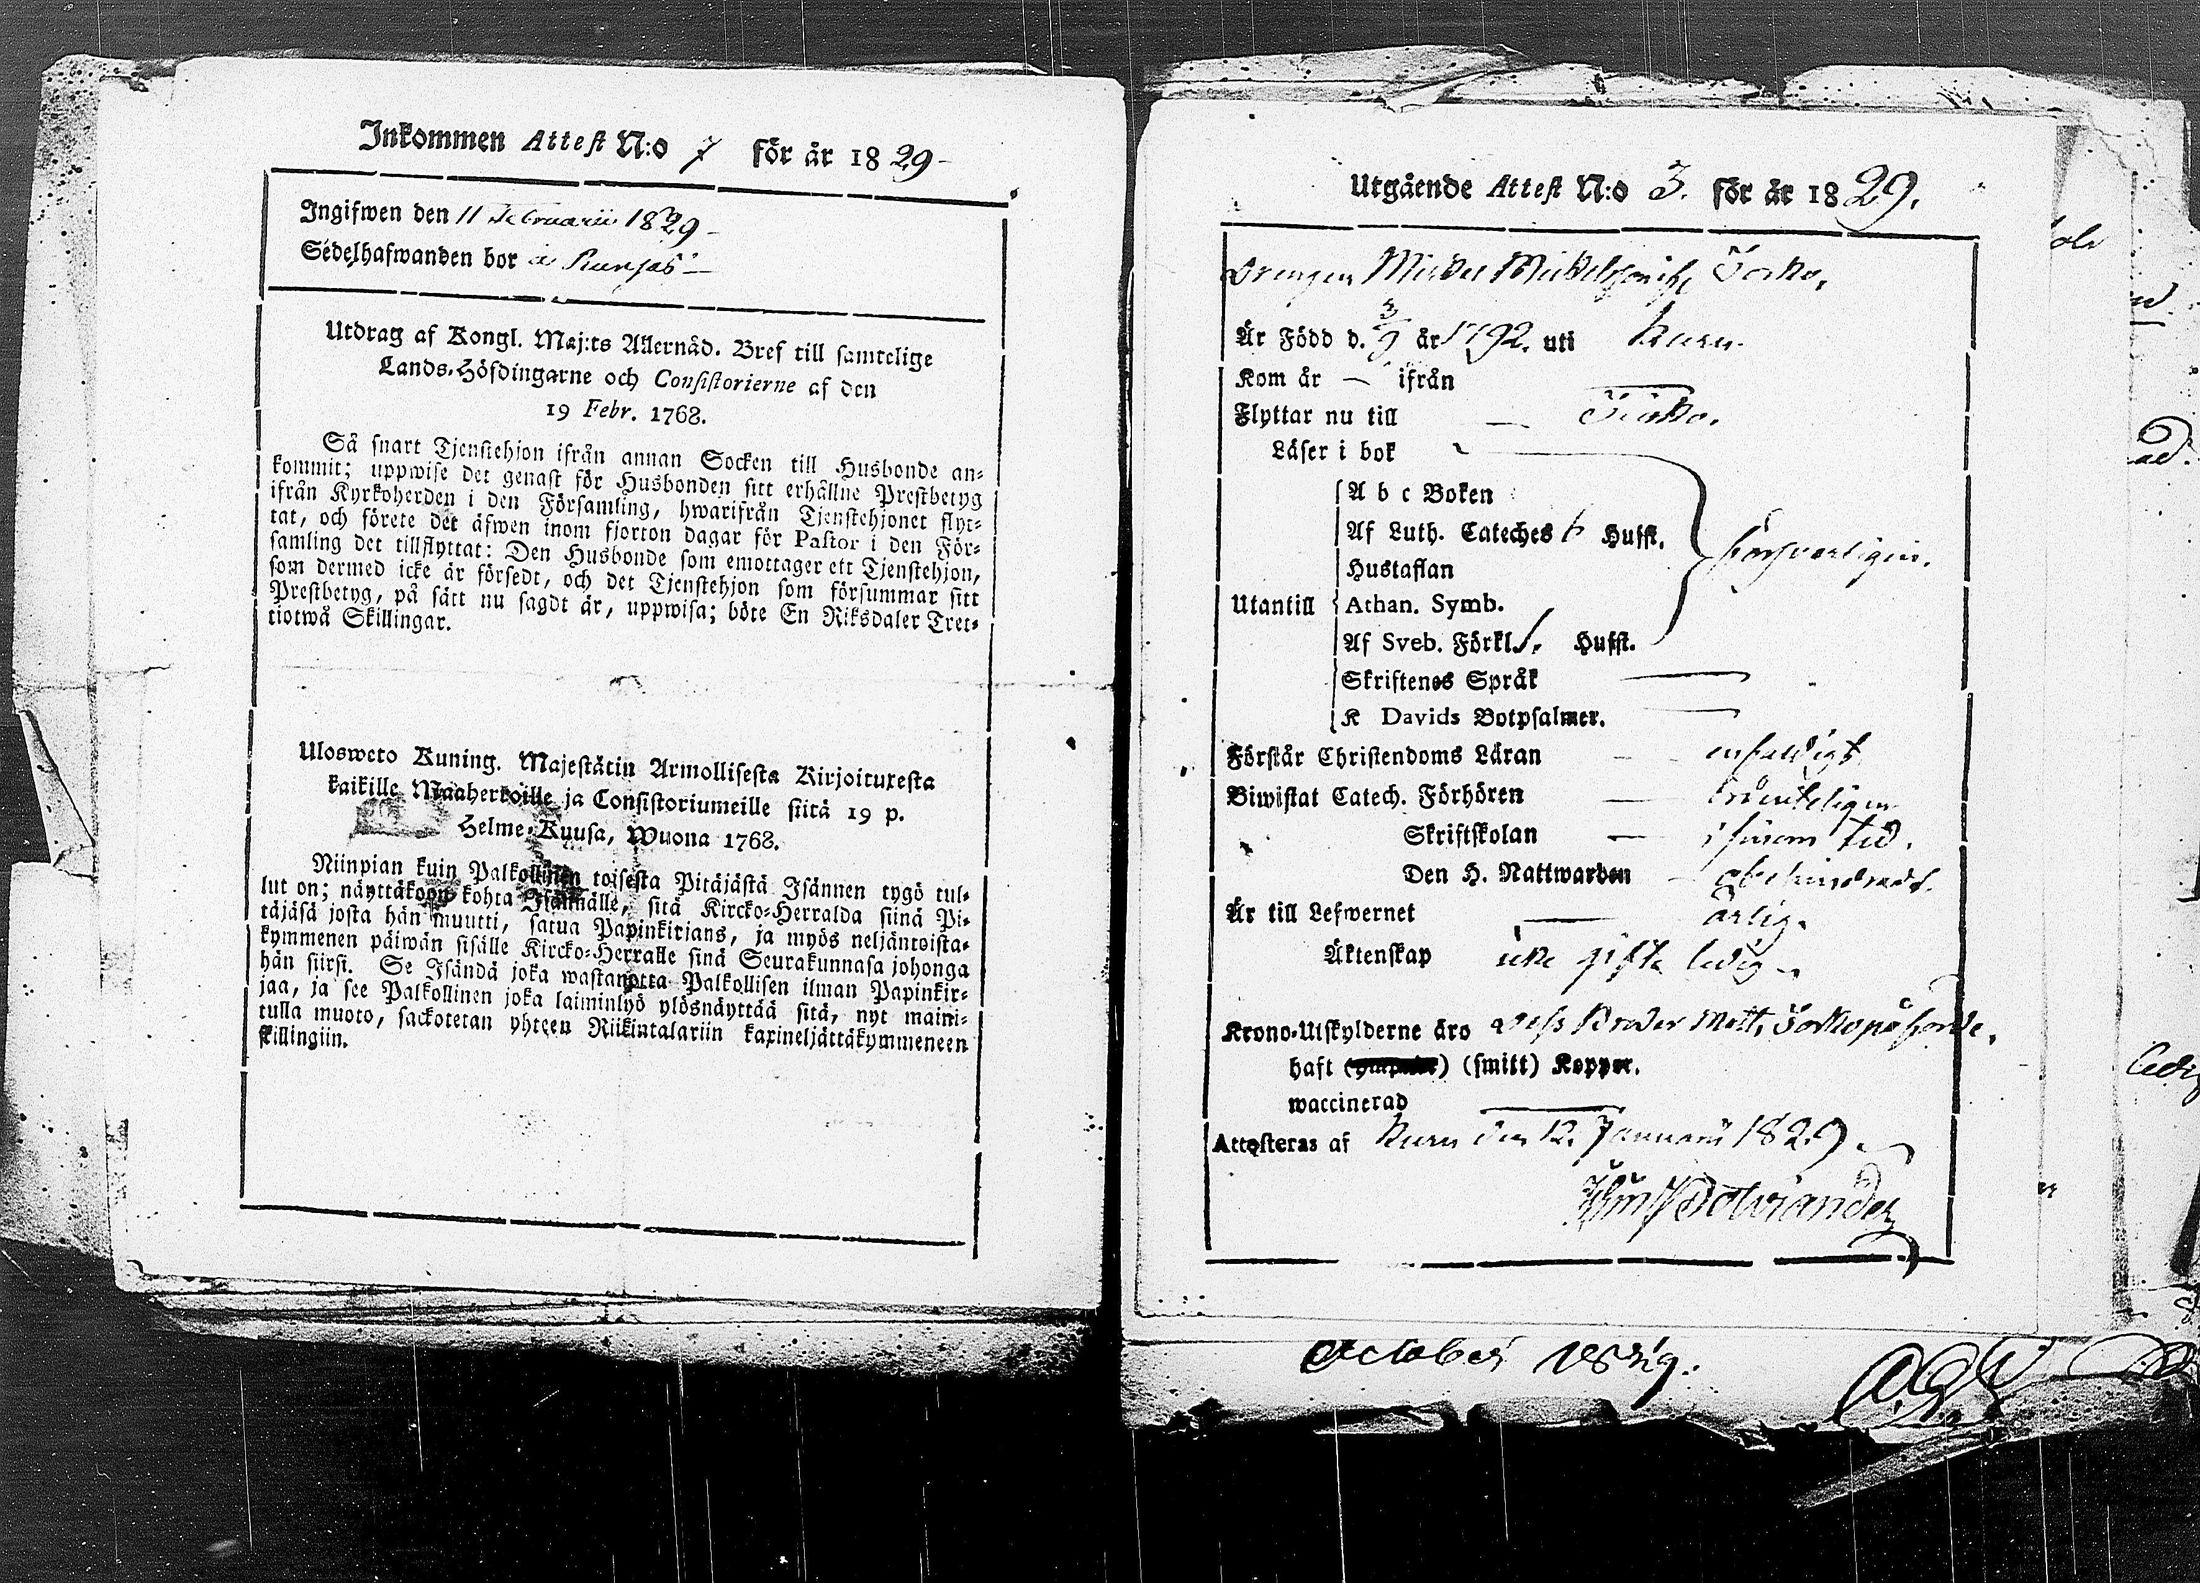 Inkommen Attest N:o 7 för år 1829
Ingifwen den 11 Februarii 1829
Sedelhafwanden bor å
Utdrag af Kongl. Maj:ts Allernåd. Bref till samtelige
Lands-Höfdingarne och Consistorierne af den
19 Febr. 1768.
Så snart Tjenstehjon ifrån annan Socken till Husbonde an-
kommit; uppwise det genast för Husbonden sitt erhållne Prestbetyg
ifrån Kyrkoherden i den Församling, hwarifrån Tjenstehjonet flyt-
tat, och förete det äfwen inom fjorton dagar för Pastor i den För-
samling det tillflyttat: Den Husbonde som emottager ett Tjenstehjon,
som dermed icke är försedt, och det Tjenstehjon som försummar sitt
Prestbetyg, på sätt nu sagdt är, uppwisa; böte En Riksdaler Tret-
tiotwå Skillingar.
Ulosweto Kuning. Majestätin Armollisesta Kirjoituxesta
kaikille Maaherroille ja Consistoriumeille siitä 19 p.
Helme-Kuusa, Wuona 1768.
Niinpian kuin Palkollinen toisesta Pitäjästä Isännen tygö tul-
lut on; näyttäkoon kohta Isännälle, sitä Kircko-Herralda siinä Pi-
täjäsä josta hän muutti, satua Papinkirjans, ja myös neljäntoista-
kymmenen päiwän sisälle Kircko-Herralle sinä Seurakunnasa johonga
hän siirsi. Se Isändä joka wastanotta Palkollisen ilman Papinkir-
jaa, ja see Palkollinen joka laiminlyö ylösnäyttää sitä, nyt maini-
tulla muoto, sackotetan yhteen Riikintalariin kaxineljättäkymmeneen
skillingiin.
Utgående Attest N:o 3. för år 1829.
Drengen Mickel Mickelsson
Är Född d. 3/9 år 1792. uti Kuru
Kom år — ifrån
Flyttar nu till —
Läser i bok
A b c Boken
Af Luth. Cateches 6 Hufst.
Hustaflan
Utantill Athan. Symb.
Af Sveb. Förkl. Hufst.
försvarligen.
Skriftenes Språk —
K Davids Botpsalmer. —
Förstår Christendoms Läran — enfaldigt
Biwistat Catech. Förhören — ordenteligen
Skriftskolan — i sinom tid.
Den H. Nattwarden — obehindradt.
Är till Lefwernet — ärlig.
Äktenskap icke gift, ledig
Krono-Utskylderne äro dess Broder Matts påförde.
haft (smitt) Koppor.
waccinerad —
Attesteras af Kuru den 12. Januarii 1829.
October